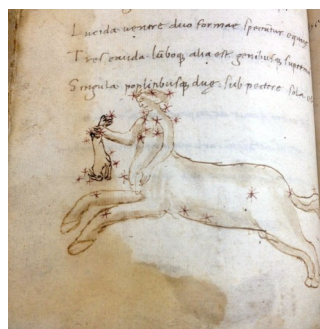 Lucida ventre duo formae spectatur equine
Tres cauda. lūboq; alia est genibusq; supremis
Singula poplitibusq; duę sub pectore sola